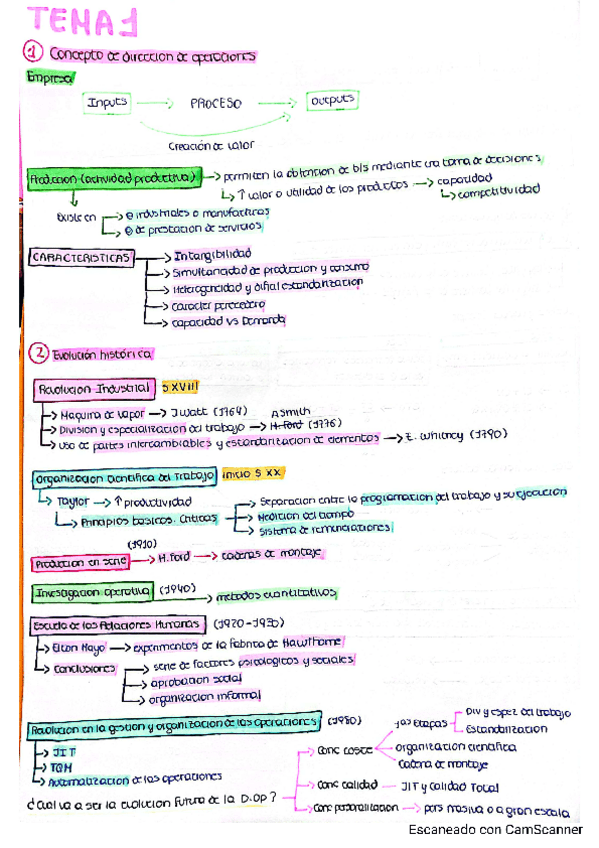 TEMA 1
1 Concepto de direccion de operaciones
Empresa
Inputs → PROCESO → Outputs
Creación de valor
Produccion (actividad productiva) → permiten la obtención de b/s mediante una toma de decisiones
↳ ↑ valor o utilidad de los productos → capacidad
↳ competitividad
Existe en → e industriales o manufactureras
↳ e de prestacion de servicios
CARACTERISTICAS → Intangibilidad
→ Simultaneidad de produccion y consumo
→ Heterogeneidad y difial estandarización
→ Caracter perecedero
→ Capacidad vs Demanda
2 Evolución histórica
Revolucion Industrial S XVIII
→ Maquina de vapor → J Watt (1764) A Smith
→ División y especialización del trabajo → H. Ford (1776)
→ Uso de partes intercambiables y estandarizacion de elementos → E. Whitney (1790)
Organizacion Cientifica del Trabajo inicio S XX
↳ Taylor → ↑ productividad
↳ Principios basicos. Criticas → Separacion entre la programacion del trabajo y su ejecucion
→ Medicion del tiempo
→ Sistema de remuneraciones
(1910)
Produccion en serie → H. Ford → cadenas de montaje
Investigacion operativa (1940) → metodos cuantitativos
Escuela de las Relaciones Humanas (1920-1930)
→ Elton Mayo → experimentos de la fabrica de Hawthorne
→ Conclusiones → serie de factores psicologicos y sociales
→ aprobacion social
→ organizacion informal
Revolucion en la gestion y organizacion de las operaciones (1980)
→ JIT
→ TQM
→ Automatización de las operaciones
¿Cual va a ser la evolucion futura de la D.OP?
Conc coste → 1as Etapas → Div y espez del trabajo
Estandalización
Organizacion cientifica
Cadena de montaje
Conc calidad → JIT y Calidad Total
Conc personalizacion → pers masiva o a gran escala
Escaneado con CamScanner